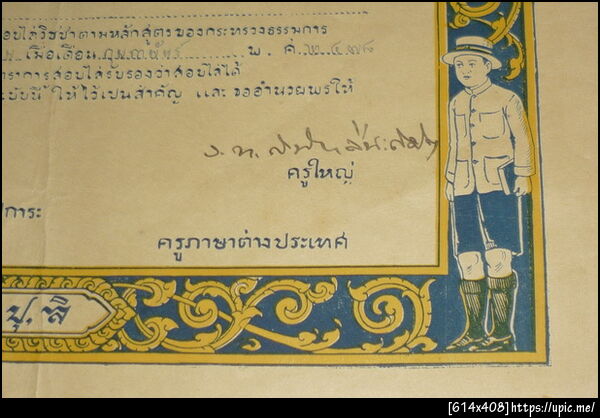 อบไล่วิชชาตามหลักสูตรของกระทรวงธรรมการ
เมื่อเดือน กุมภาพันธ์ พ. ศ. ๒๔๗๘
ราการสอบไล่รับรองว่าสอบไล่ได้
บับนี้ ให้ไว้เปนสำคัญ และ ขออำนวยพรให้
ครูใหญ่
การะ
ครูภาษาต่างประเทศ
ปุ. ลิ
[614x408]https://upic.me/